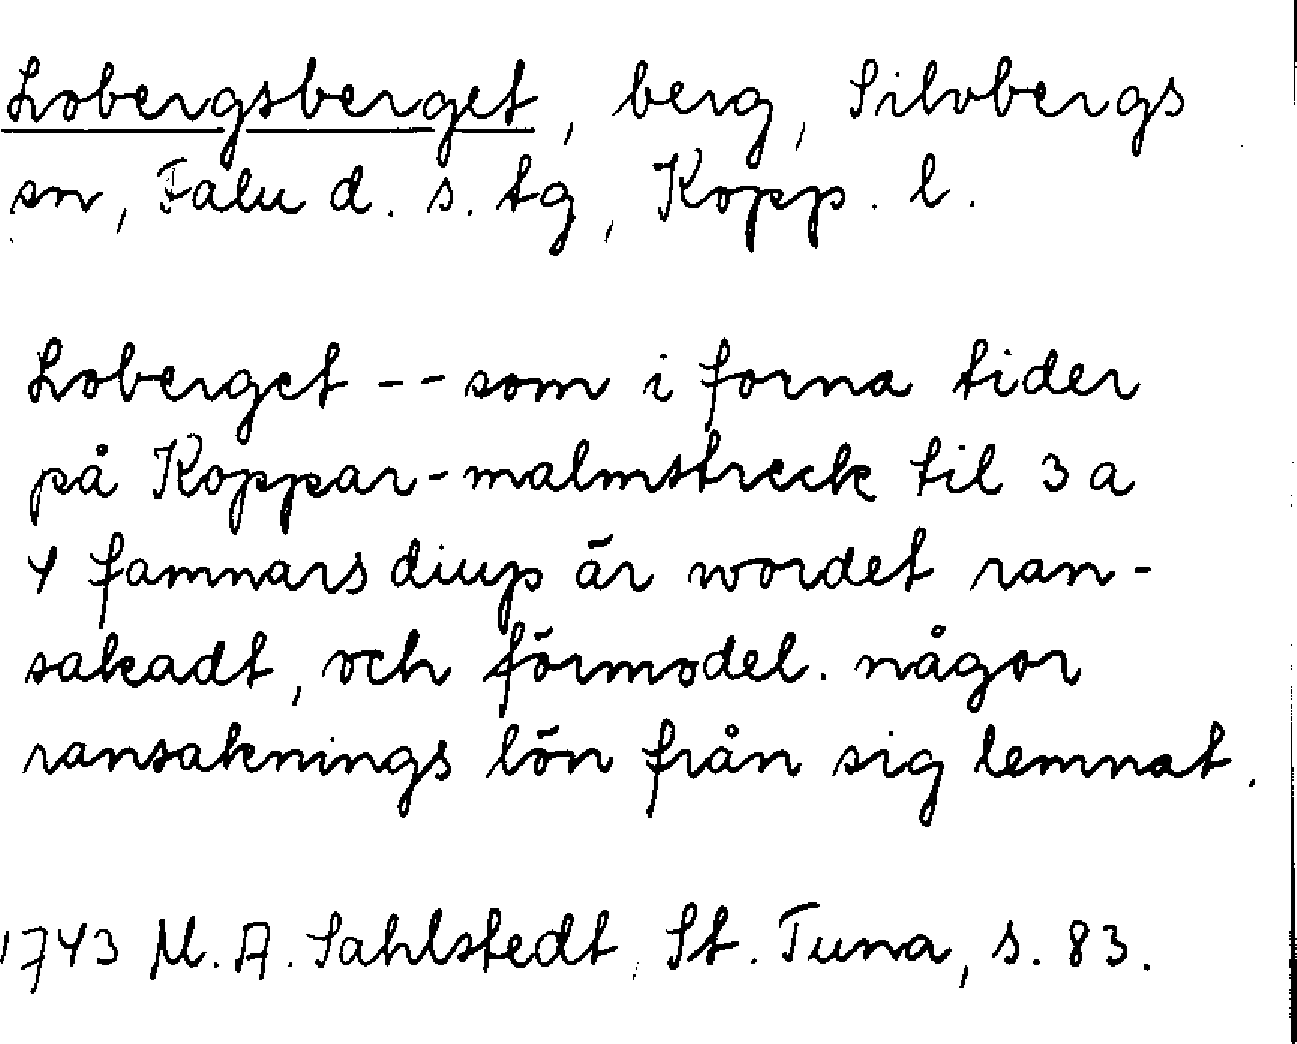 Lobergsberget, berg, Silvbergs
sn, Falu d. s. tg, Kopp. l.
Loberget -- som i forna tider
på Koppar-malmstreck til 3 a
4 famnars diup är wordet ran-
sakadt, och förmodel. någor
ransaknings lön från sig lemnat.
1743 M. A. Sahlstedt, St. Tuna, s. 83.